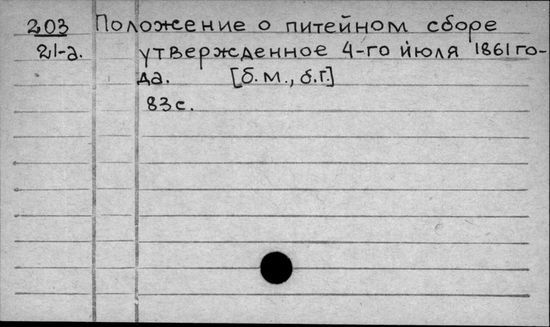 203 Положение о питейном сборе
21-а. утвержденное 4-го июля 1861 го-
да. [б.м., б.г.]
83с.